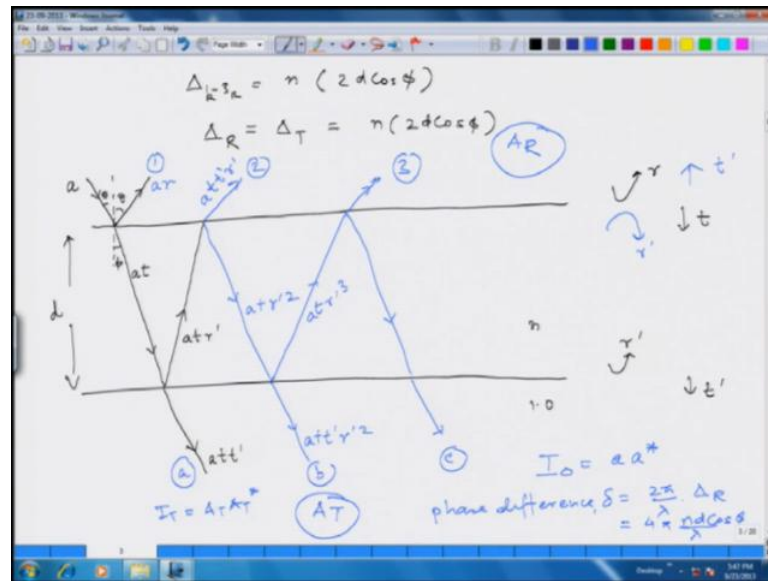 23-09-2013 - Windows Journal
File Edit View Insert Actions Tools Help
Page Width
B I
= n (2dCosϕ)
Δ_R = Δ_T = n(2dCosϕ)
A_R
a
①
ar
②
att'r'
③
r
t'
t
r'
at
d
atr'
atr'2
atr'3
n
1.0
r'
t'
att'
att'r'2
ⓐ
ⓑ
ⓒ
I_T = A_T A_T*
A_T
I_0 = aa*
phase difference, δ = 2π/λ . Δ_R
= 4π ndCosϕ/λ
3
Desktop
5:47 PM
9/23/2013